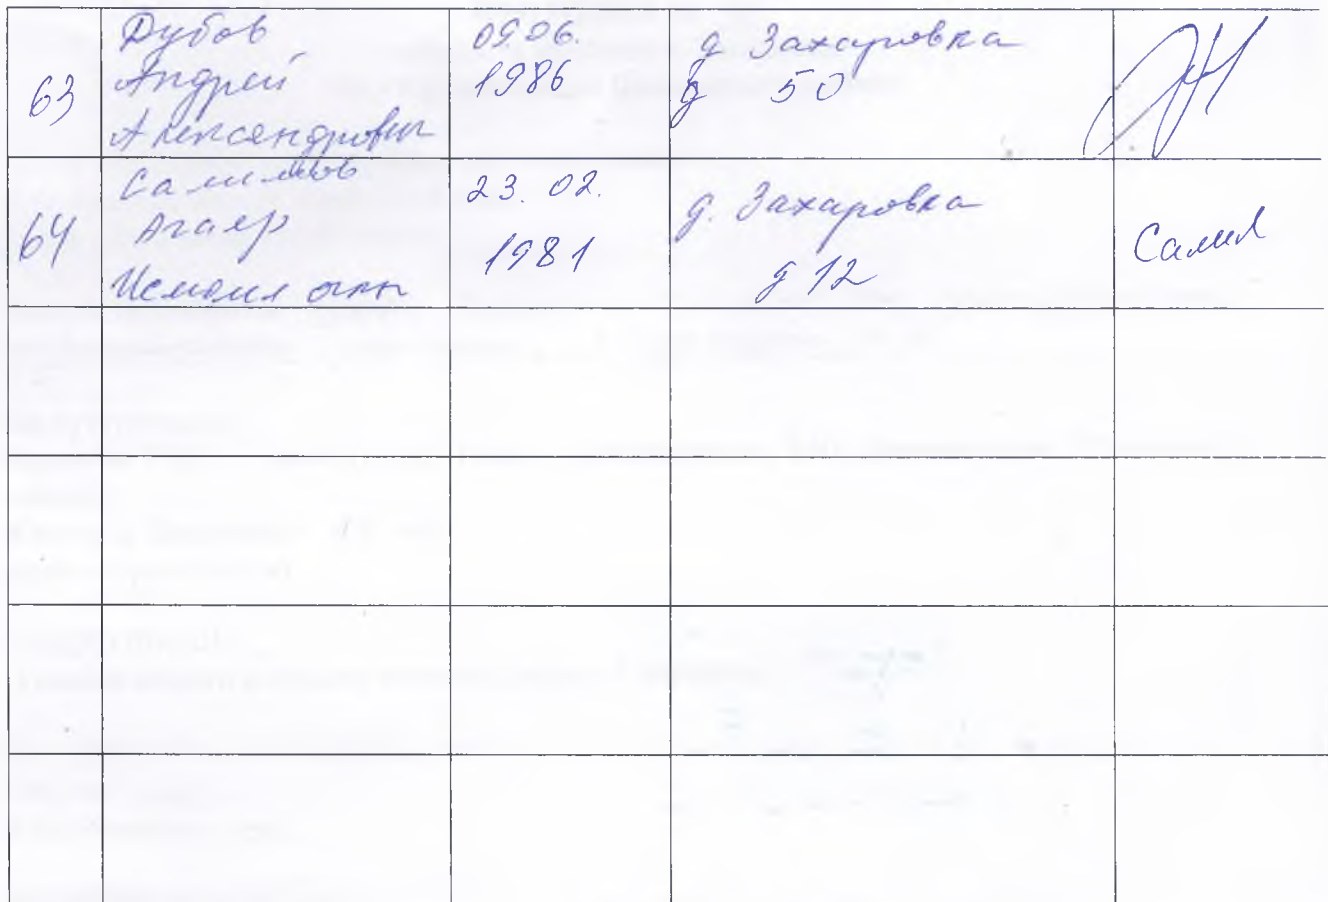 63
Дубов
Андрей
Александрович
09.06.
1986
д Захаровка
д 50
64
Салимов
Агаяр
Исмоил оглы
23.02.
1981
д. Захаровка
д 12
Салил